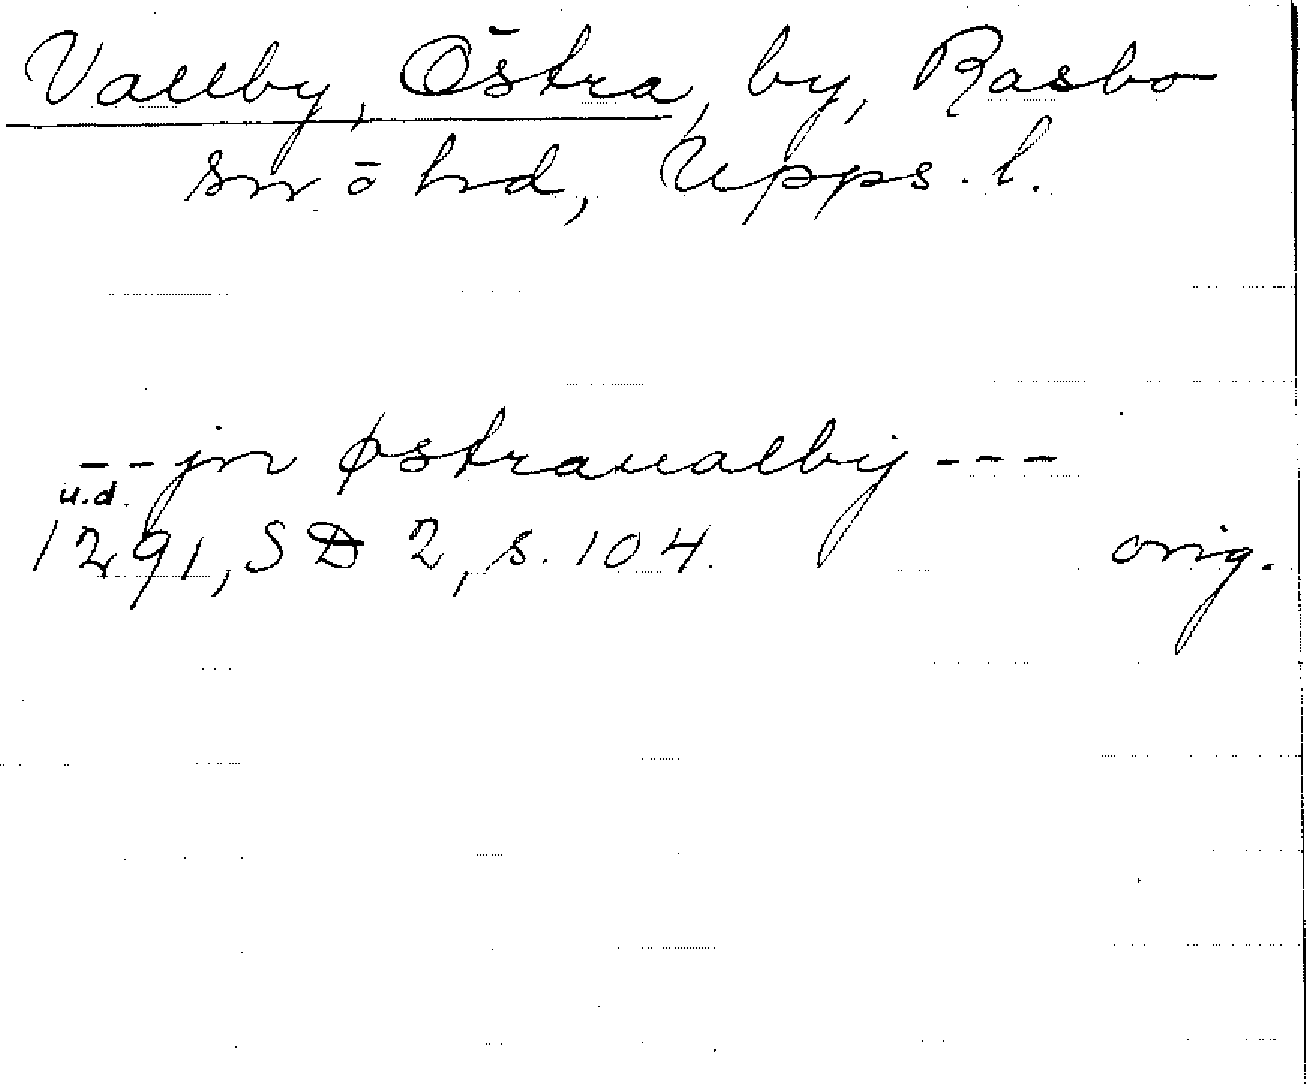 Vallby, Östra, by, Rasbo
sn o hd, Upps. l.
-- jn østraualby ---
u.d.
1291, SD 2, s. 104. orig.